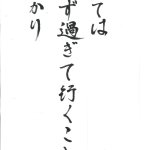 ては
ず過ぎて行くこと
かり